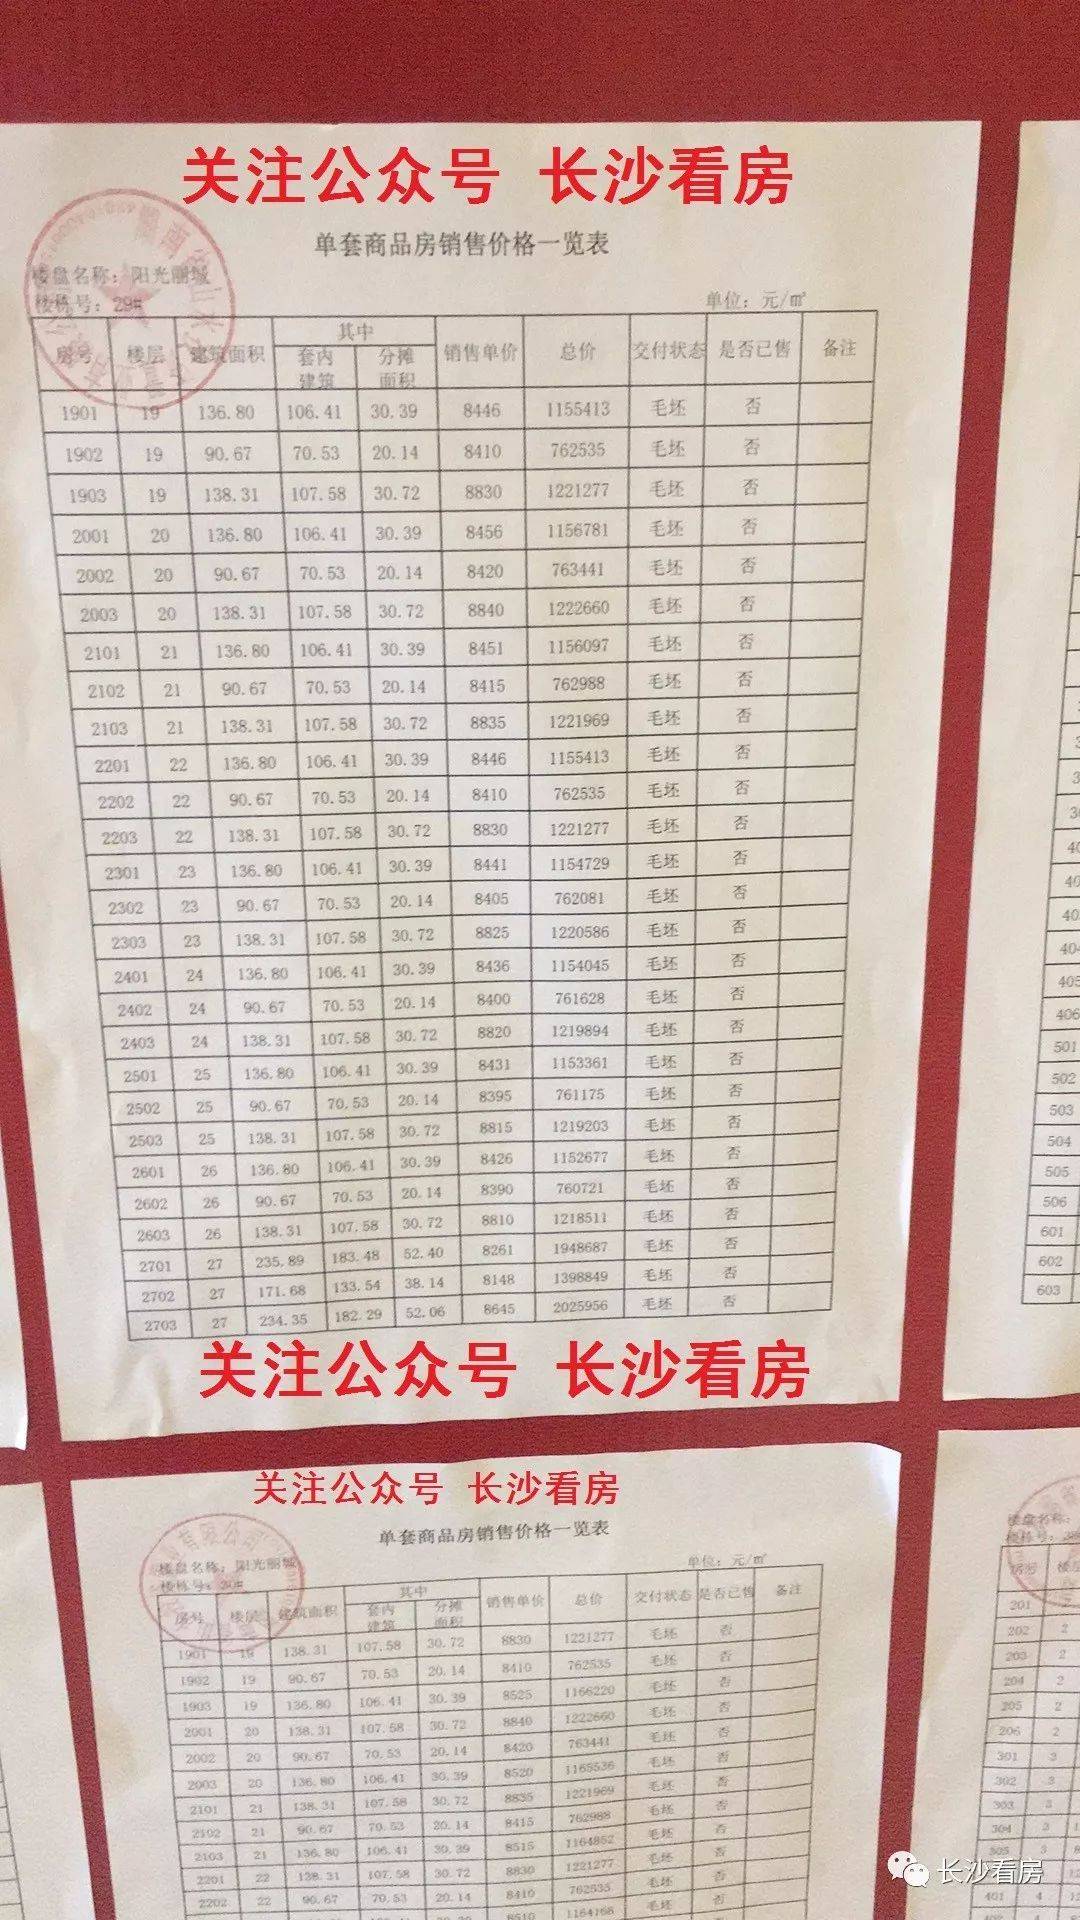 关注公众号 长沙看房
单套商品房销售价格一览表
楼盘名称：阳光丽城
楼栋号：29# 单位：元/㎡
房号 楼层 建筑面积 其中 销售单价 总价 交付状态 是否已售 备注
套内建筑 分摊面积
1901 19 136.80 106.41 30.39 8446 1155413 毛坯 否
1902 19 90.67 70.53 20.14 8410 762535 毛坯 否
1903 19 138.31 107.58 30.72 8830 1221277 毛坯 否
2001 20 136.80 106.41 30.39 8456 1156781 毛坯 否
2002 20 90.67 70.53 20.14 8420 763441 毛坯 否
2003 20 138.31 107.58 30.72 8840 1222660 毛坯 否
2101 21 136.80 106.41 30.39 8451 1156097 毛坯 否
2102 21 90.67 70.53 20.14 8415 762988 毛坯 否
2103 21 138.31 107.58 30.72 8835 1221969 毛坯 否
2201 22 136.80 106.41 30.39 8446 1155413 毛坯 否
2202 22 90.67 70.53 20.14 8410 762535 毛坯 否
2203 22 138.31 107.58 30.72 8830 1221277 毛坯 否
2301 23 136.80 106.41 30.39 8441 1154729 毛坯 否
2302 23 90.67 70.53 20.14 8405 762081 毛坯 否
2303 23 138.31 107.58 30.72 8825 1220586 毛坯 否
2401 24 136.80 106.41 30.39 8436 1154045 毛坯 否
2402 24 90.67 70.53 20.14 8400 761628 毛坯 否
2403 24 138.31 107.58 30.72 8820 1219894 毛坯 否
2501 25 136.80 106.41 30.39 8431 1153361 毛坯 否
2502 25 90.67 70.53 20.14 8395 761175 毛坯 否
2503 25 138.31 107.58 30.72 8815 1219203 毛坯 否
2601 26 136.80 106.41 30.39 8426 1152677 毛坯 否
2602 26 90.67 70.53 20.14 8390 760721 毛坯 否
2603 26 138.31 107.58 30.72 8810 1218511 毛坯 否
2701 27 235.89 183.48 52.40 8261 1948687 毛坯 否
2702 27 171.68 133.54 38.14 8148 1398849 毛坯 否
2703 27 234.35 182.29 52.06 8645 2025956 毛坯 否
关注公众号 长沙看房
40
404
405
406
501
502
503
504
505
506
601
602
603
关注公众号 长沙看房
单套商品房销售价格一览表
楼盘名称：阳光丽城
楼栋号：30# 单位：元/㎡
房号 楼层 建筑面积 其中 销售单价 总价 交付状态 是否已售 备注
套内建筑 分摊面积
1901 19 138.31 107.58 30.72 8830 1221277 毛坯 否
1902 19 90.67 70.53 20.14 8410 762535 毛坯 否
1903 19 136.80 106.41 30.39 8525 1166220 毛坯 否
2001 20 138.31 107.58 30.72 8840 1222660 毛坯 否
2002 20 90.67 70.53 20.14 8420 763441 毛坯 否
2003 20 136.80 106.41 30.39 8520 1165536 毛坯 否
2101 21 138.31 107.58 30.72 8835 1221969 毛坯 否
2102 21 90.67 70.53 20.14 8415 762988 毛坯 否
2103 21 136.80 106.41 30.39 8515 1164852 毛坯 否
2201 22 138.31 107.58 30.72 8830 1221277 毛坯 否
2202 22 90.67 70.53 20.14 8410 762535 毛坯 否
8510 1164168 毛坯 否
楼盘名称：
楼栋号：
房号 楼
201 2
202 2
203 2
204 2
205 2
206 2
301 3
302 3
303 3
304 3
305 3
401 4
长沙看房